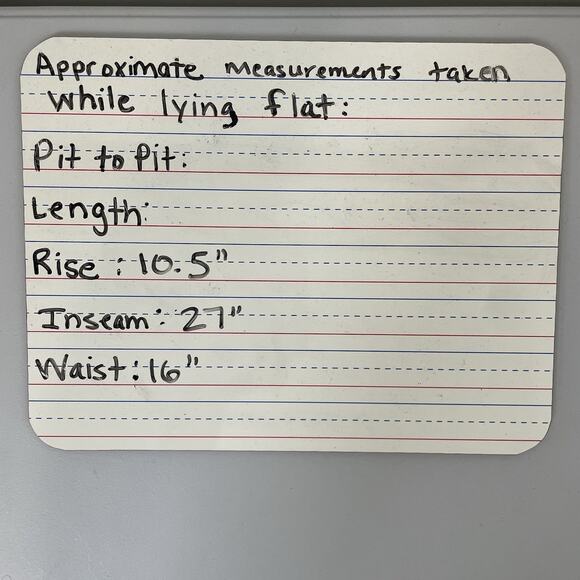 Approximate measurements taken
while lying flat:
Pit to Pit:
Length:
Rise : 10.5"
Inseam: 27"
Waist: 16"